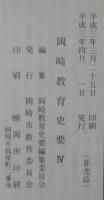 平成三年三月二十五日 印刷
平成三年四月 一日 発行
(非売品)
岡崎教育史要 Ⅳ
編集 岡崎教育史要編集委員会
発行 岡崎市教育委員会
印刷 ㈱岡田印刷
岡崎市魚屋町一番地